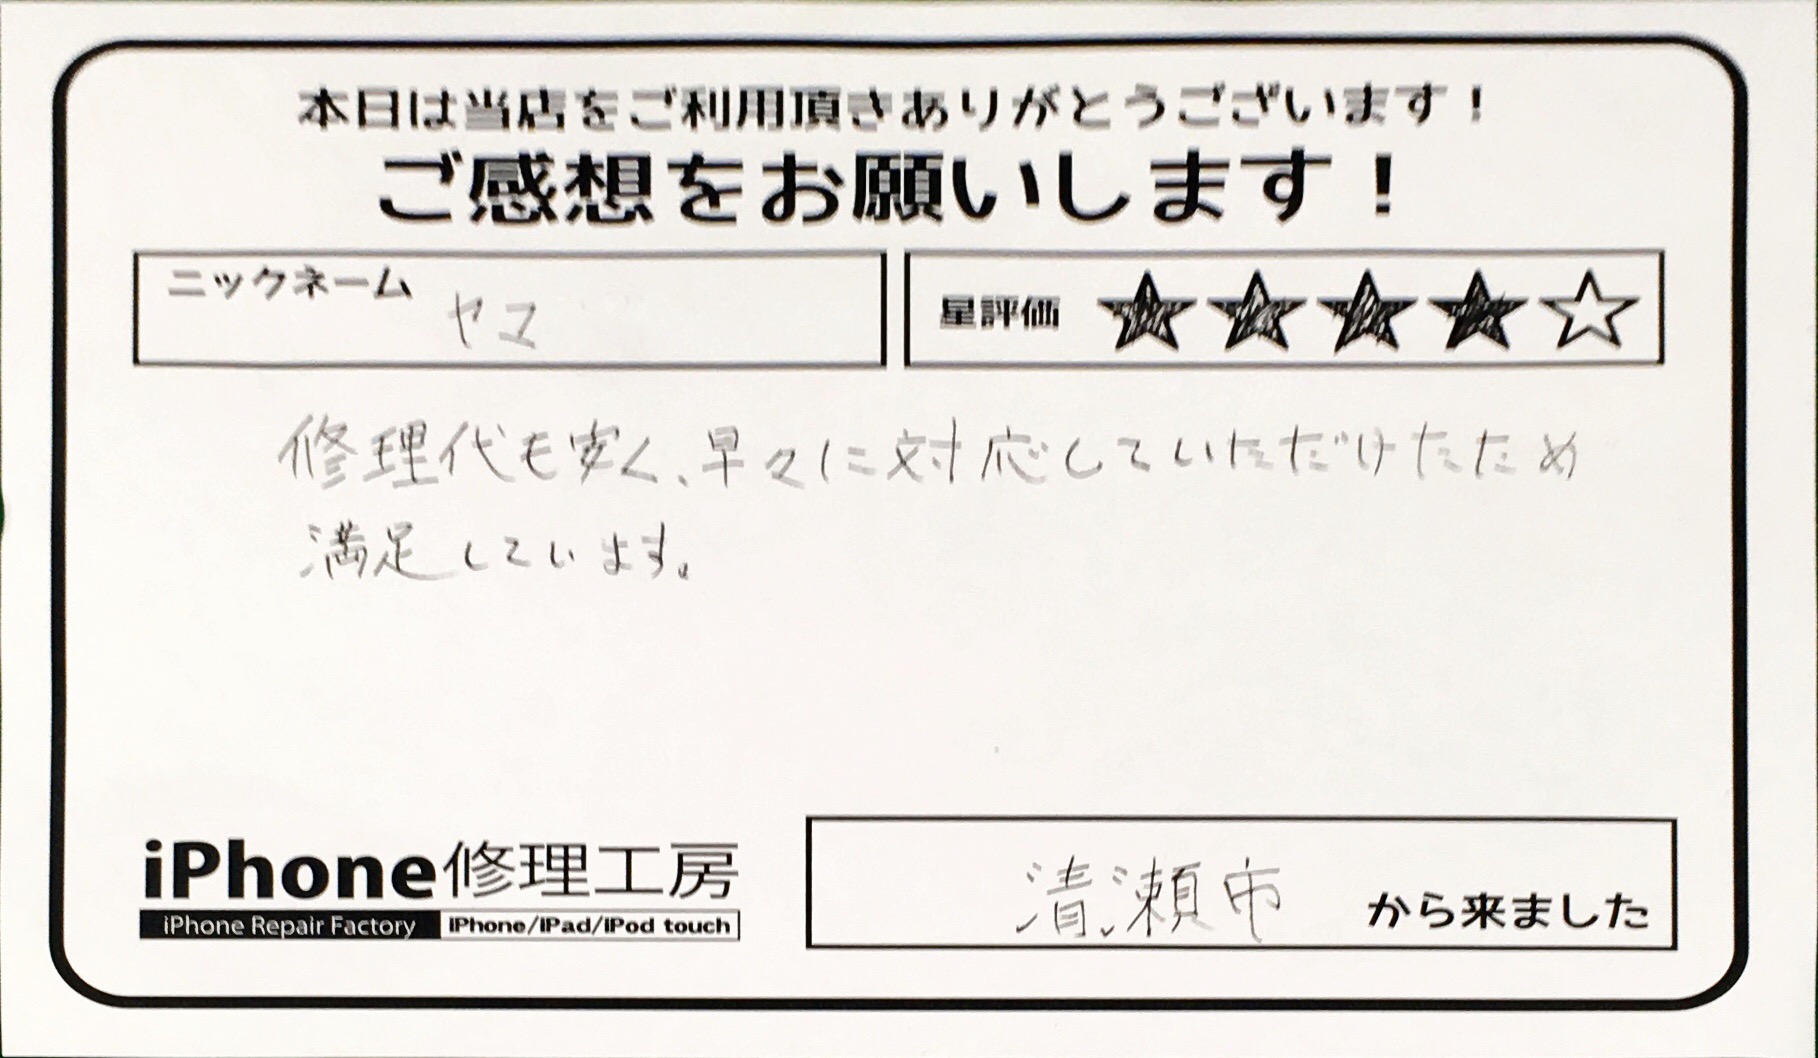 本日は当店をご利用頂きありがとうございます！
ご感想をお願いします！
ニックネーム ヤマ
星評価 ★★★★☆
修理代も安く、早々に対応していただけたため
満足しています。
iPhone修理工房
iPhone Repair Factory iPhone/iPad/iPod touch
清瀬市 から来ました